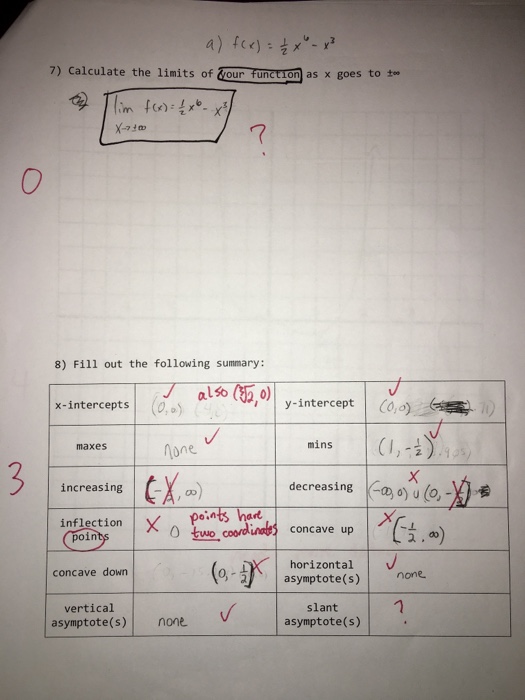 a) f(x) = 1/2 x^6 - x^3
7) Calculate the limits of your function as x goes to ±∞
lim f(x) = 1/2 x^6 - x^3
x→±∞
?
0
8) Fill out the following summary:
also (∛2, 0)
x-intercepts ✓ (0,0) y-intercept ✓ (0,0)
maxes none ✓ mins (1, -1/2) ✓
3
increasing decreasing x (-∞, 0) ∪ (0,
inflection points x 0 points have two coordinates concave up x (-1/2, ∞)
concave down (0, -1/2) x horizontal asymptote(s) ✓ none
vertical asymptote(s) none ✓ slant asymptote(s) ?